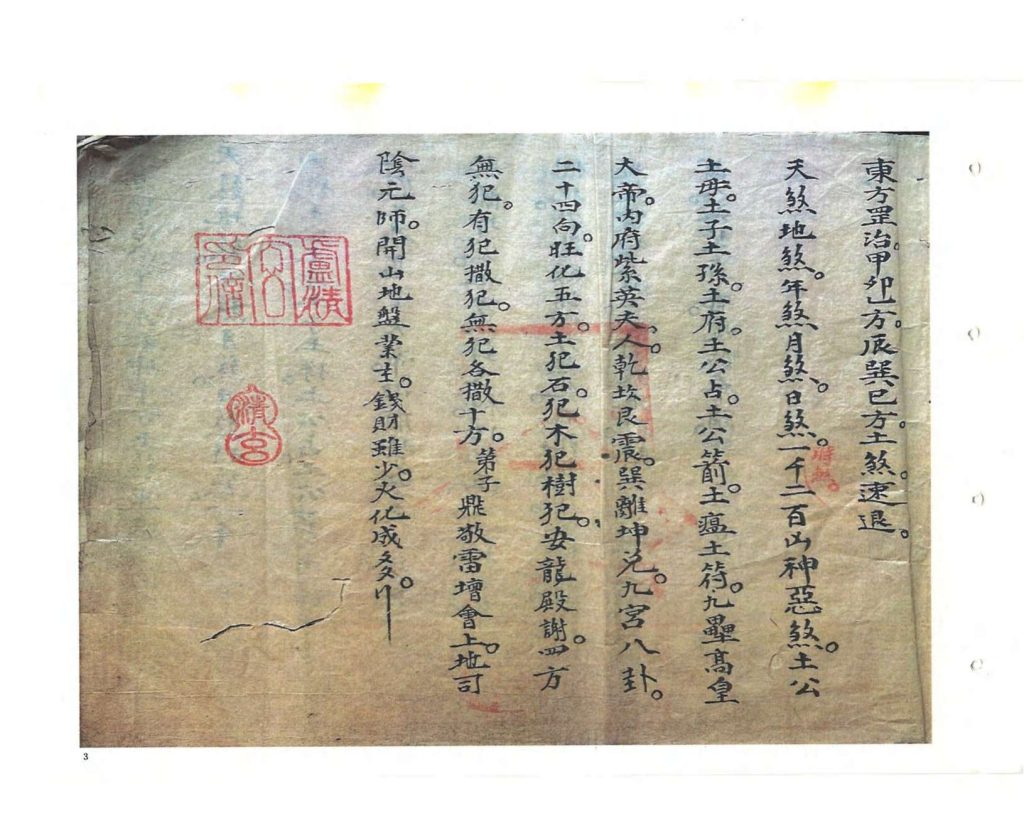 東方罡治。甲卯山方。辰巽巳方。土煞速退。
天煞地煞。年煞月煞。日煞。時煞。一千二百山神惡煞。土公
土母。土子土孫。土府。土公占。土公箭。土瘟土符。九壘高皇
大帝。内府紫英夫人。乾坎艮震。巽離坤兑。九宮八卦。
二十四向。旺化五方。土犯石。犯木犯樹犯。安龍殿謝。四方
無犯。有犯撒犯。無犯各撒十方。弟子鼎敬雷壇會上。地司
陰元師。開山地盤業主。錢財雖少。火化成多。
清玄
3